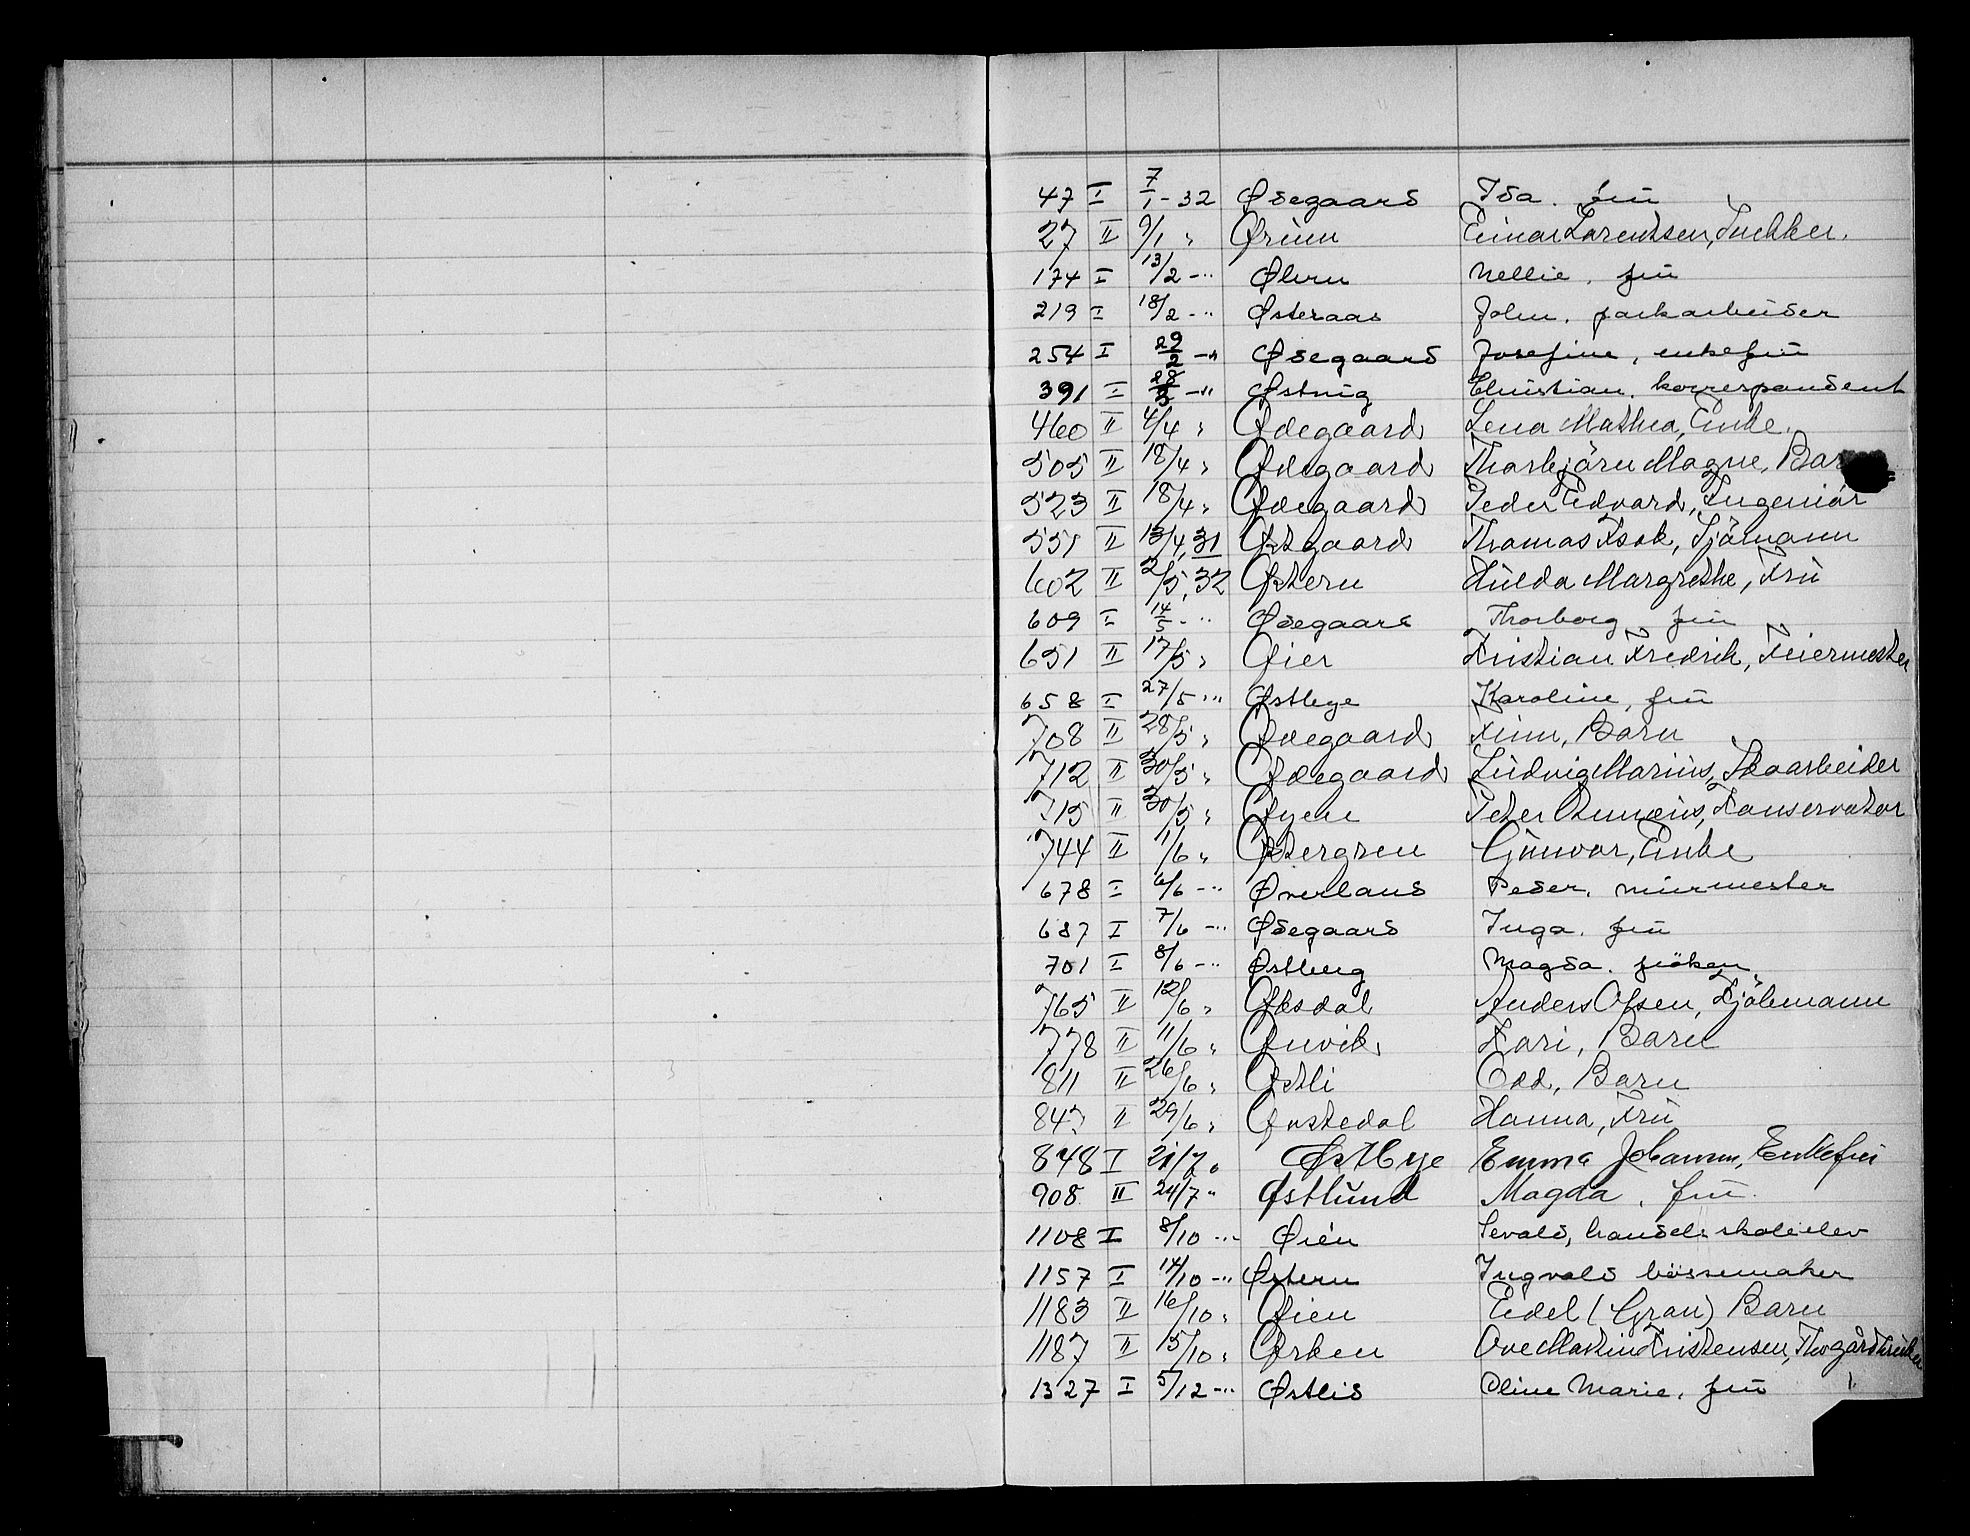 47 I 7/1 - 32 Ødegaard Ida. frü
27 II 9/1 " Ørum Einar Lorentzen, Snekker.
174 I 13/2 -"- Øhrn Nellie. frü
219 I 18/2 -"- Østeraas John. parkarbeider
254 I 29/2 -"- Ødegaard Josefine, enkefrü
391 I 28/3 -"- Østvig Christian. korrespondent
460 II 4/4 " Ødegaard Lena Mathea, Enke.
505 II 18/4 " Ødegaard Thorbjörn Magne, Bar
523 II 18/4 " Ødegaard Peder Edvard, Ingeniör
551 II 13/4, 31 Østgaard Thomas Isak, Sjömann
602 II 2/5, 32 Østern Hulda Margrethe, Frü
609 I 14/5 -"- Ødegaard Thorborg frü
651 II 17/5 " Øier Kristian Fredrik, Feiermester
658 I 27/5 -"- Østbye Karoline, frü
708 II 28/5 " Ødegaard Finn, Barn
712 II 30/5 " Ødegaard Ludvig Marius, Skoarbeider
715 II 30/5 " Øyen Peter, Konservator
744 II 1/6 " Østergren Gunvor, Enke
678 I 6/6 -"- Øverland Peder, mürmester
687 I 7/6 -"- Ødegaard Inga. frü
701 I 8/6 -"- Østberg Magda. fröken.
765 II 12/6 " Øksdal Anders Olsen, Kjöbmann
778 II 11/6 " Ørvik Kari, Barn
811 II 26/6 " Østli Odd, Barn
843 II 29/6 " Øvstedal Hanna, Frü
848 I 21/7 " Østbye Emma Johanne, Enkefrü
908 II 24/7 " Østlund Magda, frü.
1108 I 8/10 -"- Øien Sevald, handelsskoleelev
1157 I 14/10 -"- Østern Ingvald bössemaker
1183 II 16/10 " Øien Eidel (Gran) Barn
1187 II 15/10 " Ørken Ove Martin Kristensen,
1327 I 5/12 -"- Østlid Oline Marie. frü